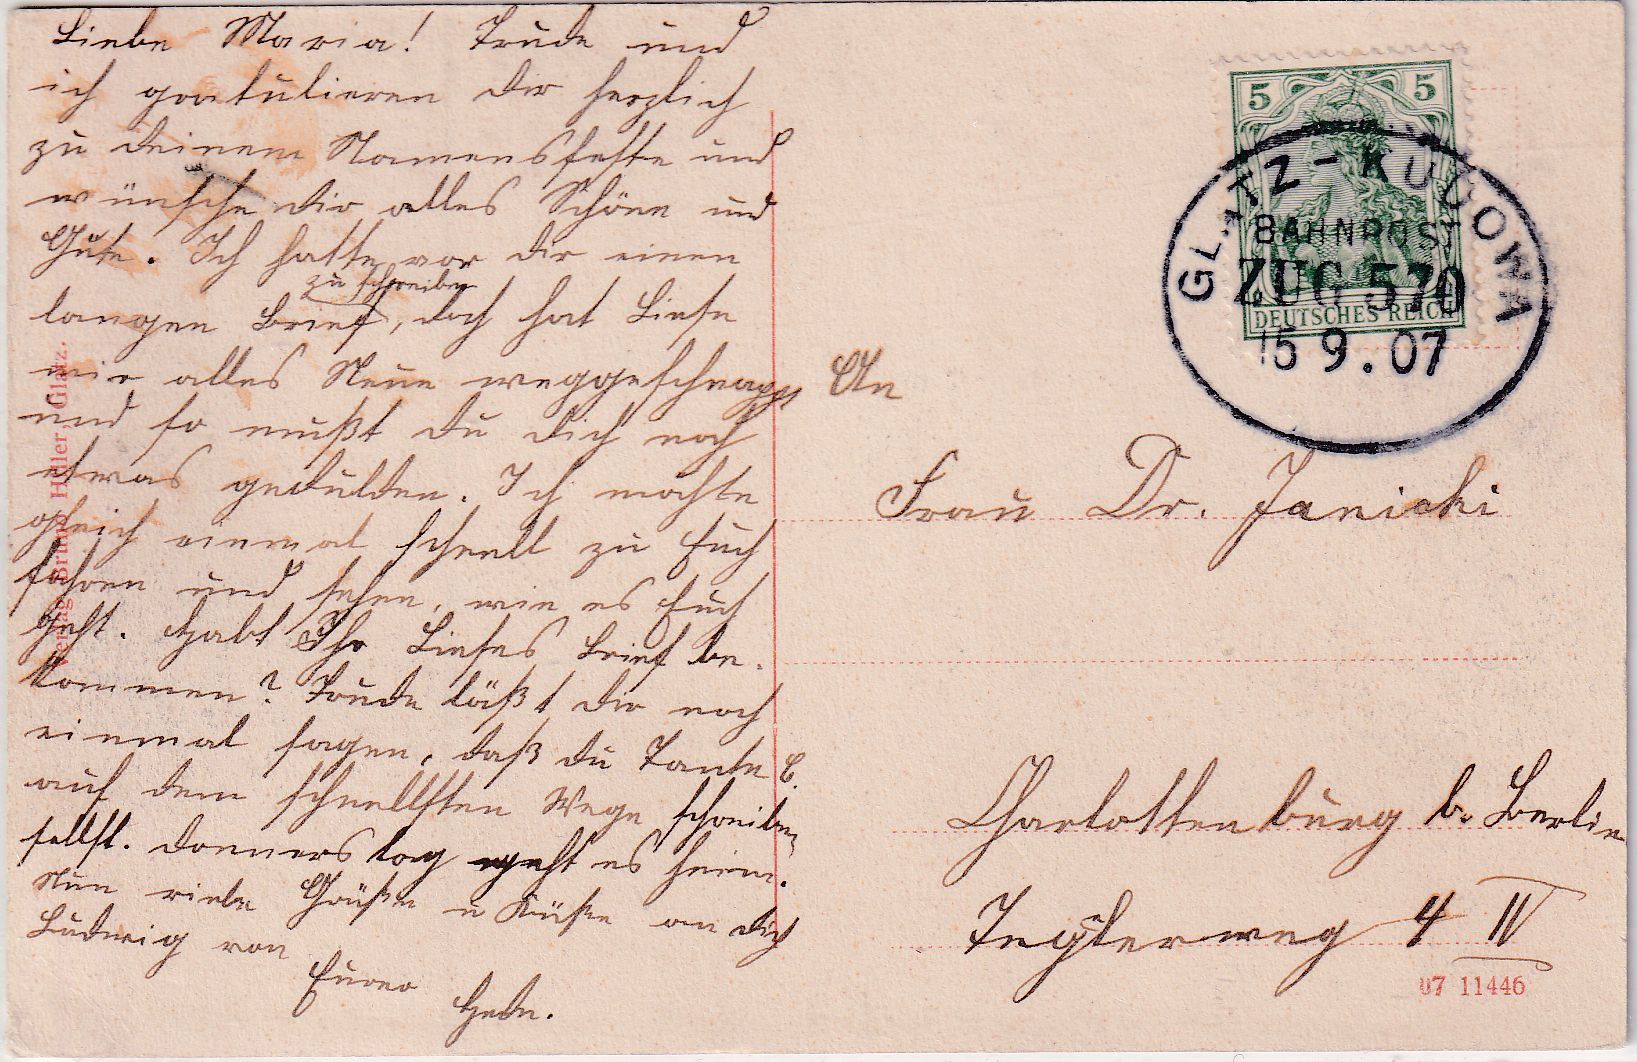 Liebe Maria! Trude und
ich gratulieren dir herzlich
zu deinem Namensfeste und
wünsche dir alles Schöne und
Gute. Ich hatte vor dir einen
zu schreiben
langen Brief, doch hat Liese
mir alles Neue weggeschnappt
und so mußt du dich noch
etwas gedulden. Ich möchte
gleich einmal schnell zu Euch
fahren und sehen, wie es Euch
geht. Habt Ihr Lieses Brief be-
kommen? Trude läßt dir noch
einmal sagen, daß du Tante C.
auf dem schnellsten Wege schreiben
sollst. Donnerstag geht es heim.
Nun viele Grüße u Küße an dich
Ludwig von
Eurer
Hede.
Verlag Bruno Hiller, Glatz.
5 5
DEUTSCHES REICH
GLATZ - KUDOWA
BAHNPOST
ZUG 570
15 9. 07
An
Frau Dr. Janicki
Charlottenburg b. Berlin
Teglerweg 4 IV
07 11446